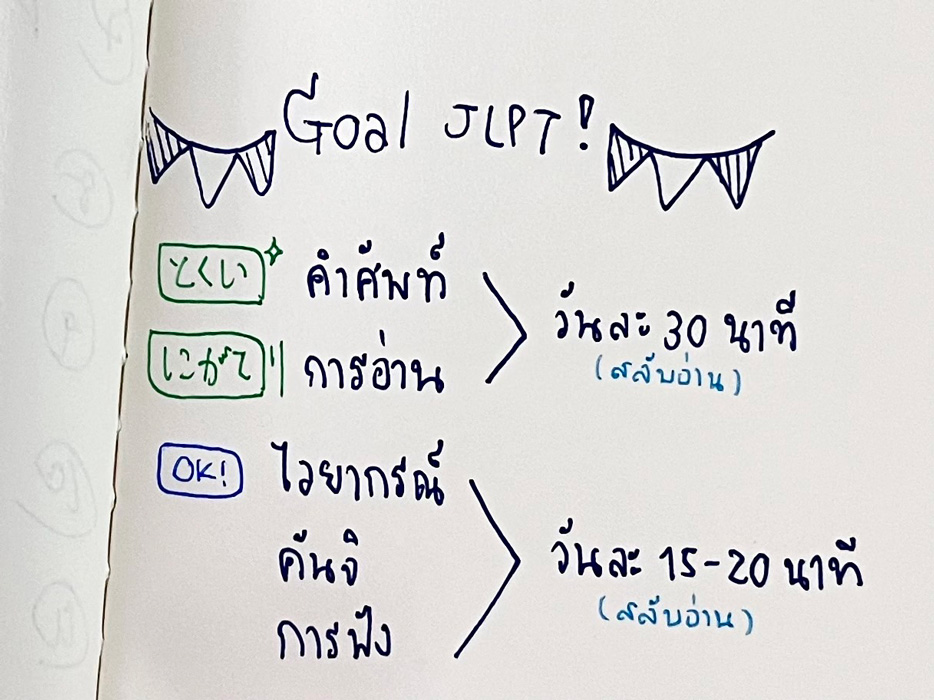 Goal JLPT!
とくい คำศัพท์
にがて การอ่าน
วันละ 30 นาที
(สลับอ่าน)
OK! ไวยากรณ์
คันจิ
การฟัง
วันละ 15-20 นาที
(สลับอ่าน)